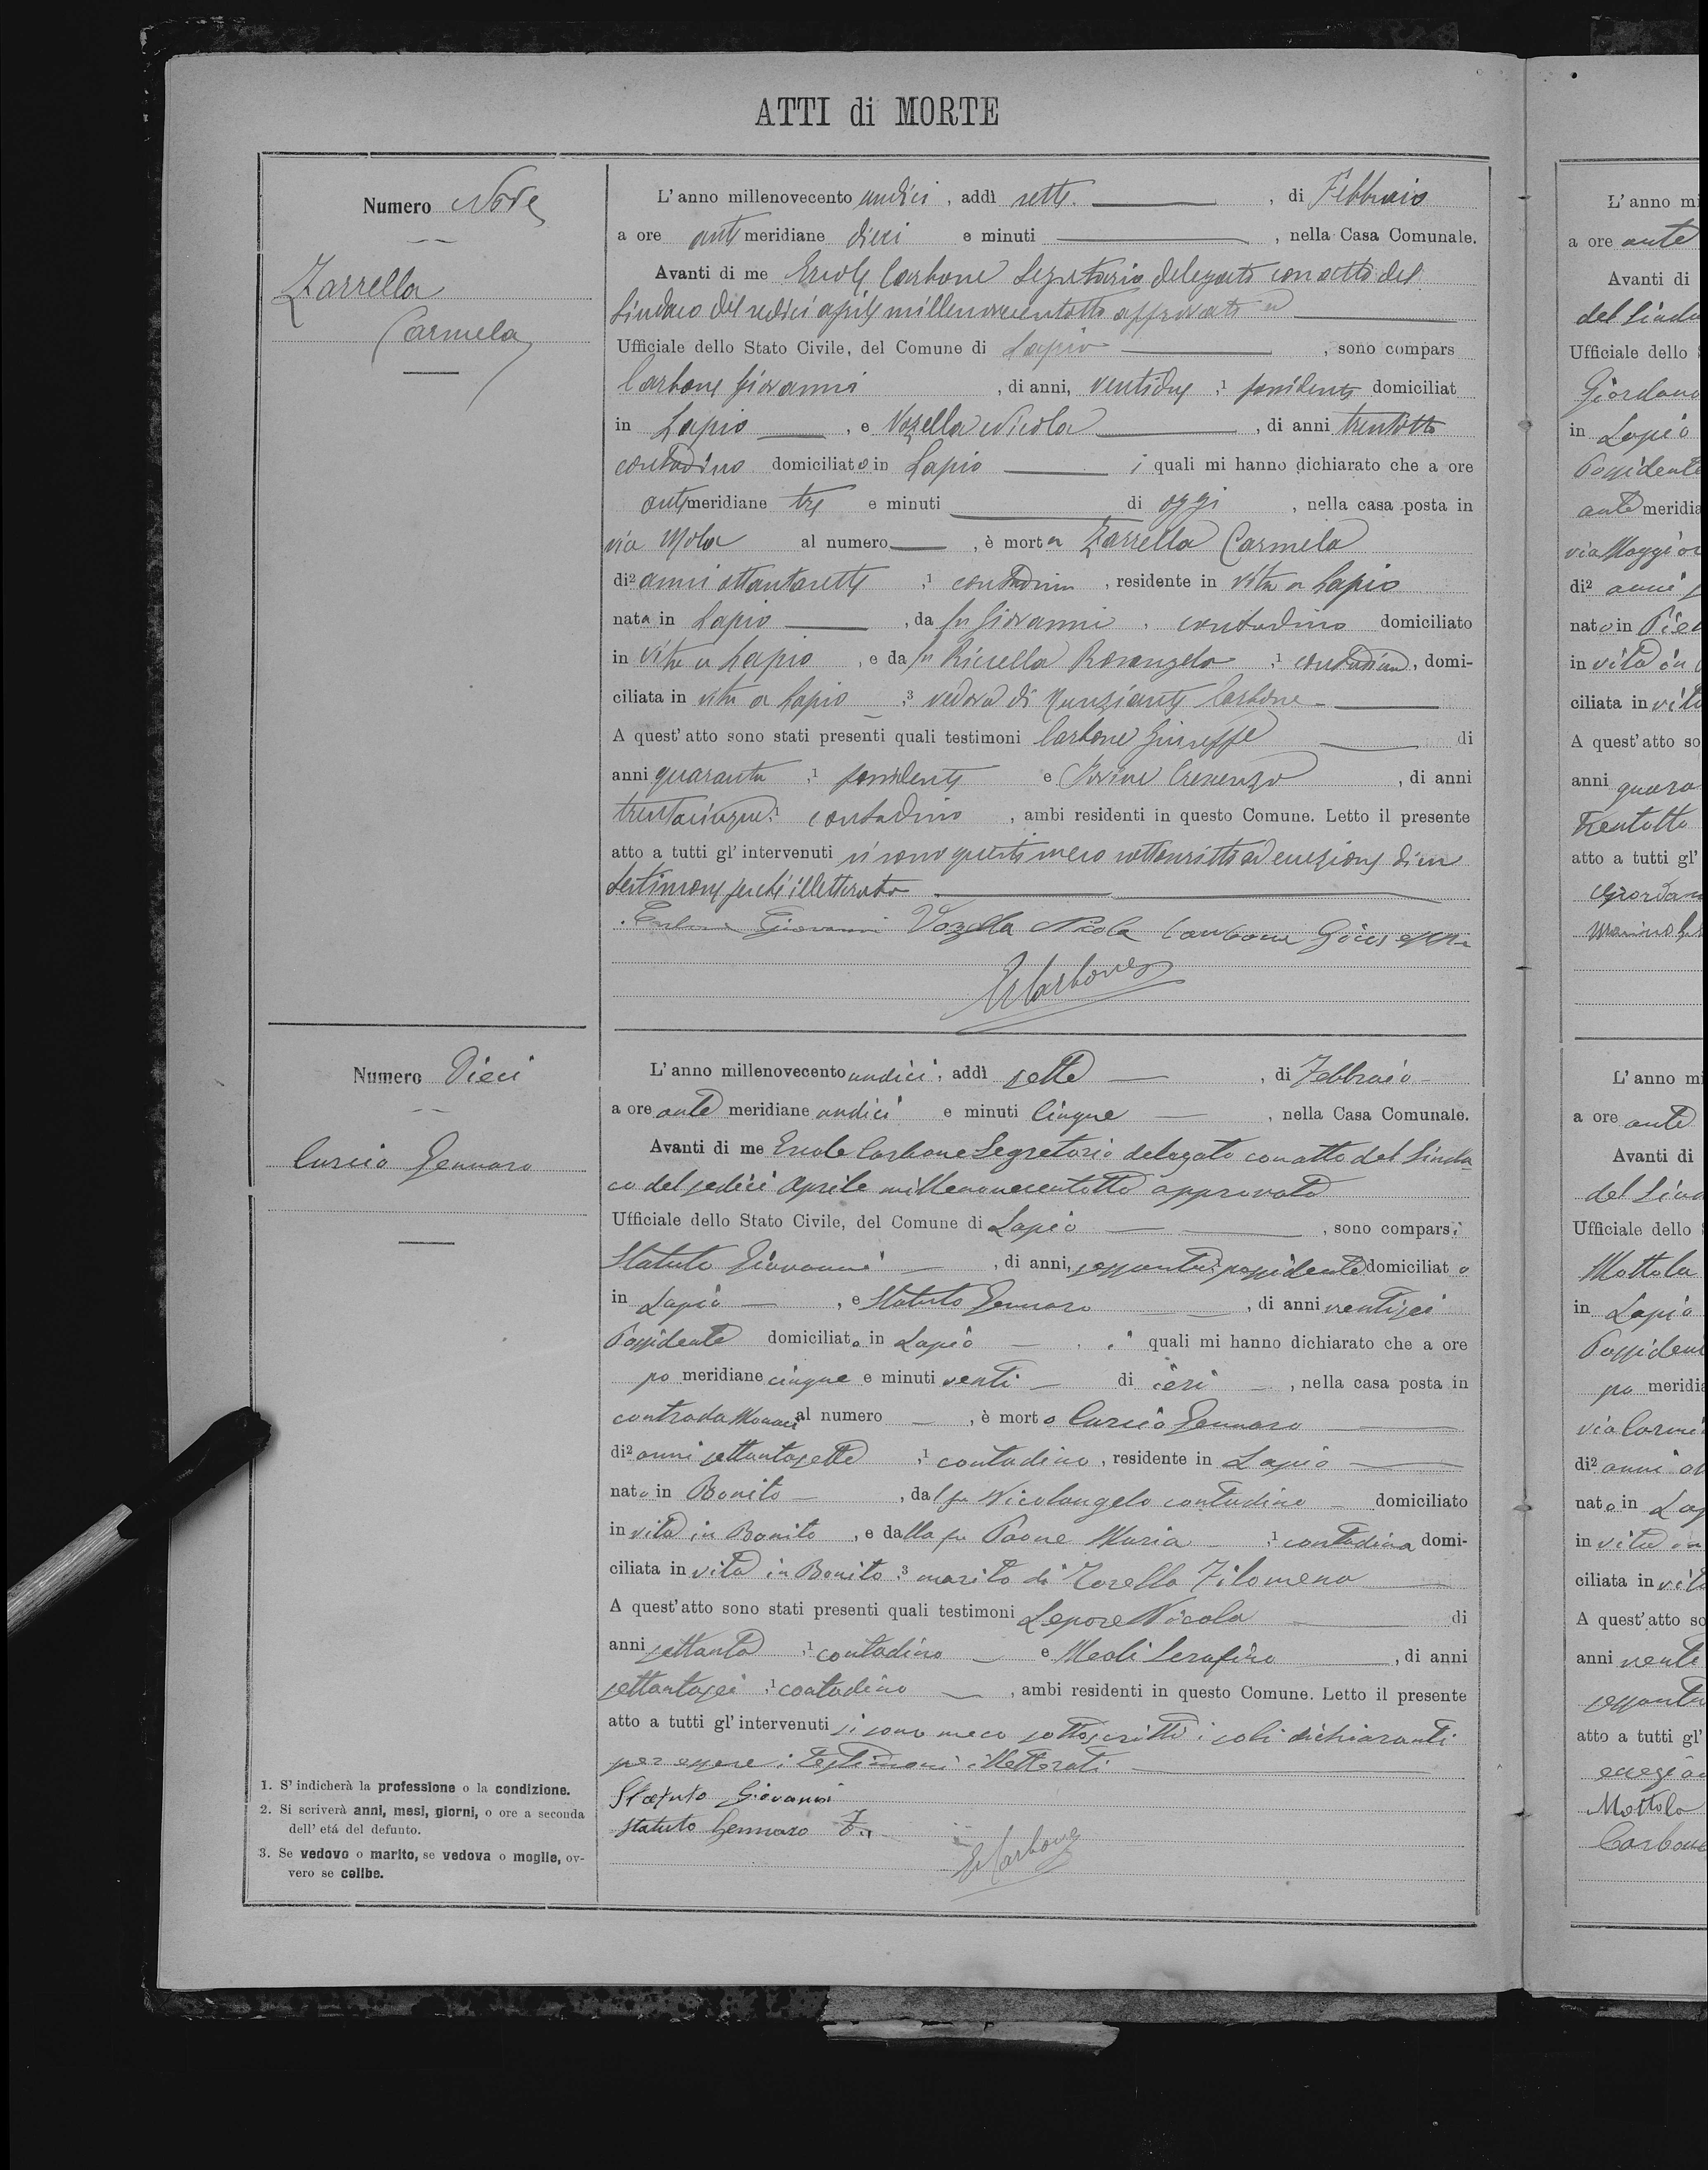 ATTI di MORTE
Numero Nove
Zarrella
Carmela
L'anno millenovecento undici, addì sette, di Febbraio
a ore antimeridiane dieci e minuti , nella Casa Comunale.
Avanti di me Ercole Carbone Segretario delegato con atto del
Sindaco del sedici aprile millenovecentotto approvato
Ufficiale dello Stato Civile, del Comune di Lapio , sono compars
Carbone Giovanni , di anni, ventidue ,1 possidente domiciliat
in Lapio , e Vozella Nicola , di anni trentotto
contadino domiciliato in Lapio i quali mi hanno dichiarato che a ore
antimeridiane tre e minuti di oggi , nella casa posta in
via Mola al numero , è morta Zarrella Carmela
di2 anni ottantasette ,1 contadina , residente in vita a Lapio
nata in Lapio , da fu Giovanni , contadino domiciliato
in vita a Lapio , e da fu Rosangela ,1 contadina, domi-
ciliata in vita a Lapio ,3 vedova di Nunziante Carbone
A quest'atto sono stati presenti quali testimoni Carbone Giuseppe di
anni quaranta ,1 possidente e Crescenzo , di anni
trentacinque,1 contadino , ambi residenti in questo Comune. Letto il presente
atto a tutti gl'intervenuti si sono questi meco sottoscritti ad eccezione di un
testimone perché illetterato
Carbone Giovanni Vozella Nicola Carbone Giuseppe
E Carbone
Numero Dieci
Curcio Gennaro
L'anno millenovecento undici, addì sette , di Febbraio
a ore ante meridiane undici e minuti Cinque , nella Casa Comunale.
Avanti di me Ercole Carbone Segretario delegato con atto del Sinda
co del sedici Aprile millenovecentotto approvato
Ufficiale dello Stato Civile, del Comune di Lapio , sono comparsi
Statuto Giovanni , di anni, sessanta,1 possidente domiciliato
in Lapio , e Statuto Gennaro , di anni ventisei
Possidente domiciliato in Lapio , i quali mi hanno dichiarato che a ore
po meridiane cinque e minuti venti di ieri , nella casa posta in
contrada Monaci al numero , è morto Curcio Gennaro
di2 anni settantasette ,1 contadino , residente in Lapio
nato in Bonito , dal fu Nicolangelo contadino domiciliato
in vita in Bonito , e dalla fu Paone Maria ,1 contadina domi-
ciliata in vita in Bonito ,3 marito di Zarella Filomena
A quest'atto sono stati presenti quali testimoni Lepore Nicola di
anni settanta ,1 contadino e Meoli Serafino , di anni
settantasei ,1 contadino , ambi residenti in questo Comune. Letto il presente
atto a tutti gl'intervenuti si sono meco sottoscritti i soli dichiaranti
per essere i testimoni illetterati
Statuto Giovanni
Statuto Gennaro
E Carbone
1. S'indicherà la professione o la condizione.
2. Si scriverà anni, mesi, giorni, o ore a seconda
dell'etá del defunto.
3. Se vedovo o marito, se vedova o moglie, ov-
vero se celibe.
L'anno mi
a ore ante
Avanti di
del Sinda
Ufficiale dello
Giordano
in Lapio
Possidente
ante meridia
via Maggior
di2 anni
nato in
in vita in
ciliata in vita
A quest'atto so
anni quara
Trentotto
atto a tutti gl'
Giordan
L'anno mi
a ore ante
Avanti di
del Sind
Ufficiale dello
Mottola
in Lapio
Possident
po meridia
via
di2 anni
nato in Lap
in vita in
ciliata in vit
A quest'atto so
anni venti
sessanta
atto a tutti gl'
eccezion
Mottola
Carbone